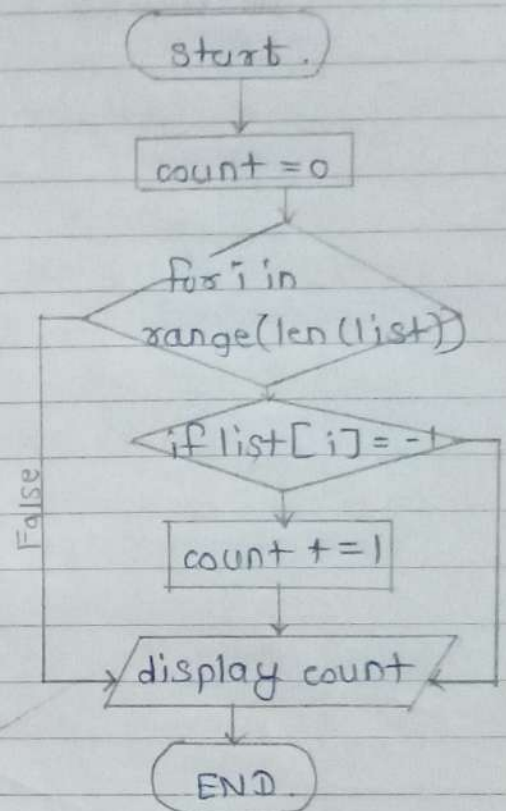 start.
count = 0
for i in
range(len(list))
if list[i] = -1
False
count += 1
display count
END.